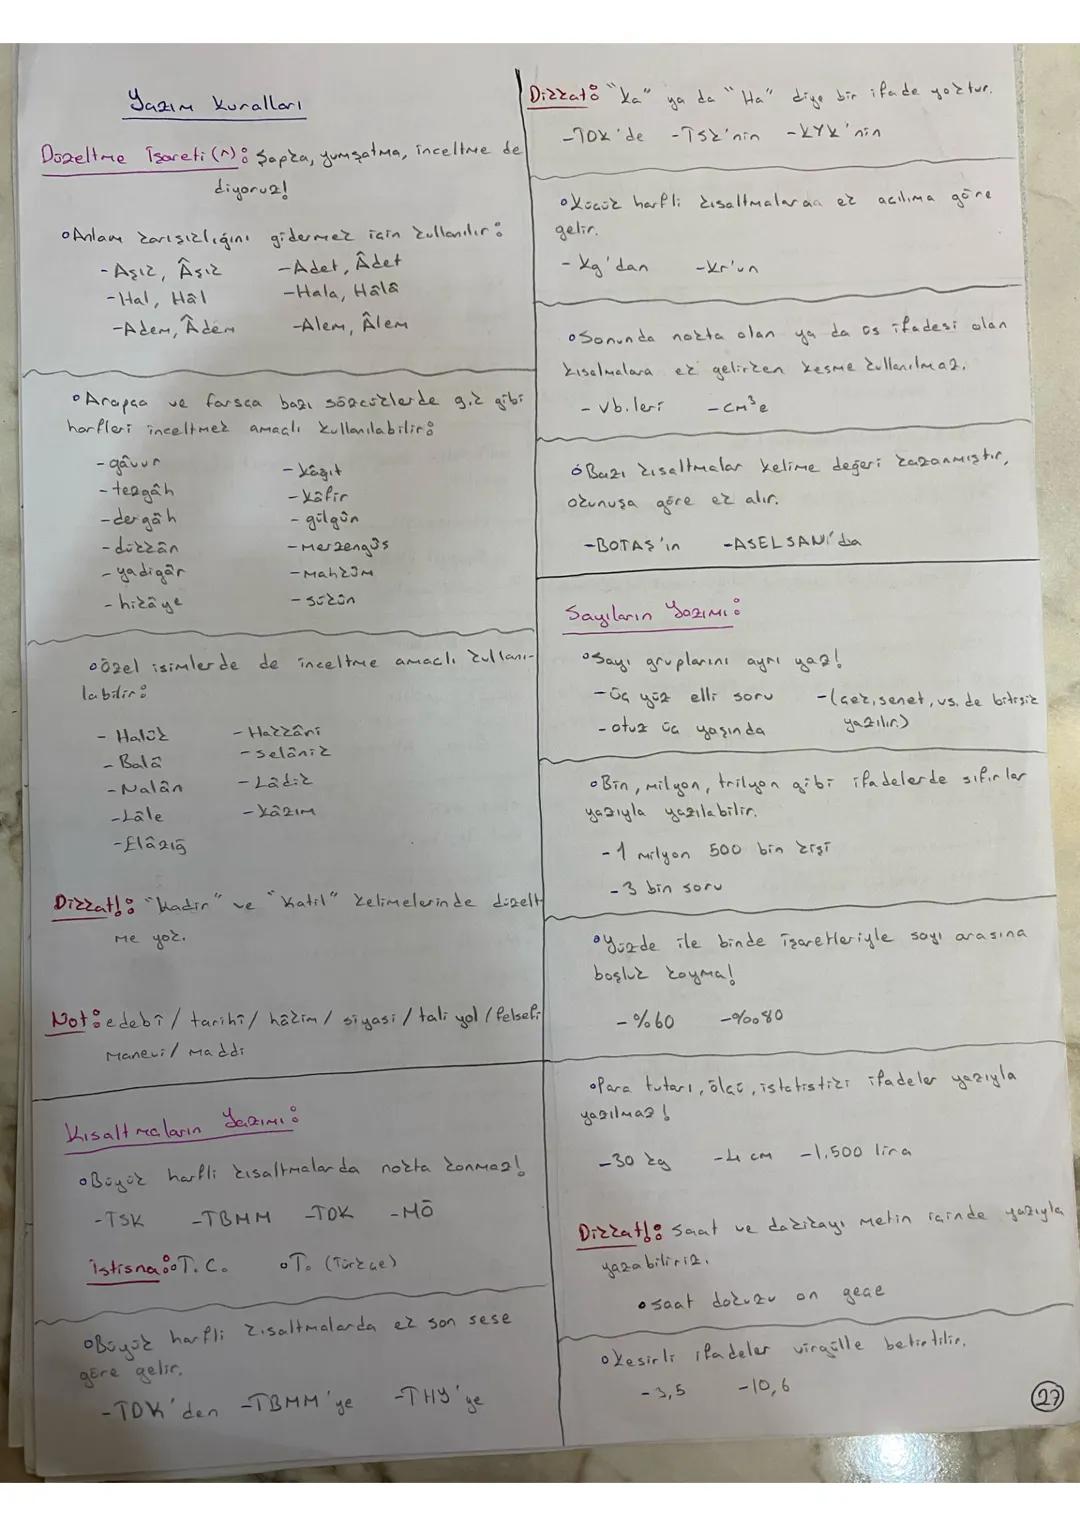 Yazım Kuralları
Düzeltme İşareti (^): Şapka, yumşatma, inceltme de
diyoruz!
• Anlam karışıklığını gidermek için kullanılır:
- Aşık, Âşık
- Adet, Âdet
- Hal, Hâl
- Hala, Hâlâ
- Adem, Âdem
- Alem, Âlem
• Arapça ve farsça bazı sözcüklerde g,k gibi
harfleri inceltmek amaçlı kullanılabilir:
- gâvur
- kâğıt
- tezgâh
- kâfir
- dergâh
- gülgûn
- dükkân
- merzengûş
- yadigâr
- mahkûm
- hikâye
- sükûn
• Özel isimlerde de inceltme amaçlı kullanı-
labilir:
- Halûk
- Hakkâri
- Balâ
- selânik
- Nalân
- Lâdik
- Lâle
- Kâzım
- Elâzığ
Dikkat!: "Kadir" ve "Katil" kelimelerinde düzelt
me yok.
Not: edebî / tarihî / hâkim / siyasi / tali yol / felsefi
manevi / maddi
Kısaltmaların Yazımı:
• Büyük harfli kısaltmalarda nokta konmaz!
- TSK - TBMM - TDK - MÖ
istisna: • T.C. • T. (Türkçe)
• Büyük harfli kısaltmalarda ek son sese
göre gelir.
- TDK'den - TBMM'ye - THY'ye
Dikkat: "Ka" ya da "Ha" diye bir ifade yoktur.
- TDK'de - TSK'nin - KYK'nin
• Küçük harfli kısaltmalarda ek açılıma göre
gelir.
- Kg'dan - Kr'un
• Sonunda nokta olan ya da üs ifadesi olan
kısalmalara ek gelirken kesme kullanılmaz.
- vb.leri - cm³e
• Bazı kısaltmalar kelime değeri kazanmıştır,
okunuşa göre ek alır.
- BOTAŞ'ın - ASELSAN'da
Sayıların Yazımı:
• Sayı gruplarını ayrı yaz!
- üç yüz elli soru
- (çek, senet, vs. de bitişik
yazılır.)
- otuz üç yaşında
• Bin, milyon, trilyon gibi ifadelerde sıfırlar
yazıyla yazılabilir.
- 1 milyon 500 bin kişi
- 3 bin soru
• Yüzde ile binde işaretleriyle sayı arasına
boşluk koyma!
- %60 - ‰80
• Para tutarı, ölçü, istatistiki ifadeler yazıyla
yazılmaz!
- 30 kg - 4 cm - 1.500 lira
Dikkat!: saat ve dakikayı metin içinde yazıyla
yazabiliriz.
• saat dokuzu on geçe
• Kesirli ifadeler virgülle belirtilir.
- 3,5 - 10,6
27